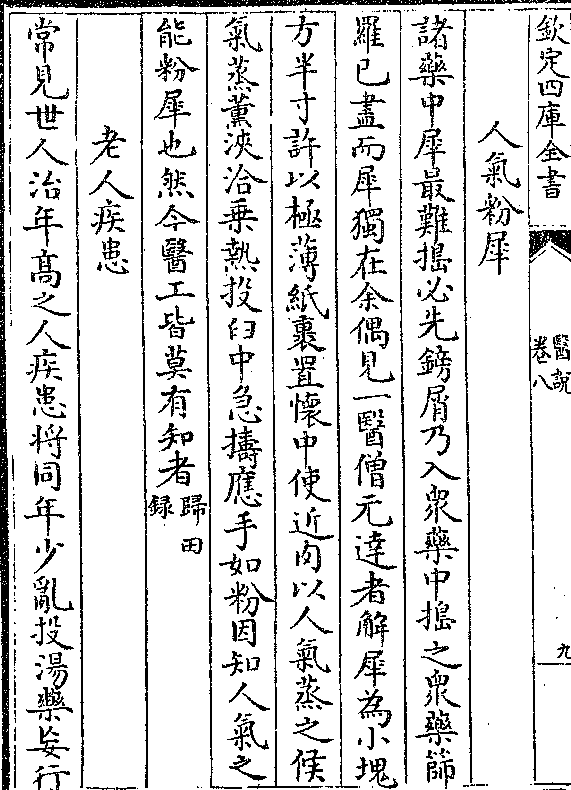 欽定四庫全書
醫說
卷八
九
人氣粉犀
諸藥中犀最難搗必先鎊屑乃入衆藥中搗之衆藥篩
羅已盡而犀獨在余偶見一醫僧元達者解犀為小塊
方半寸許以極薄紙裹置懷中使近肉以人氣蒸之候
氣蒸薰浹洽乗熱投臼中急擣應手如粉因知人氣之
能粉犀也然今醫工皆莫有知者歸田
錄
老人疾患
常見世人治年髙之人疾患將同年少亂投湯藥妄行